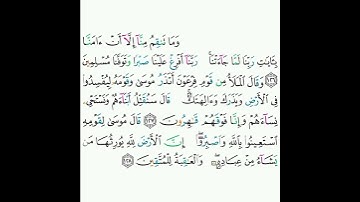 وَمَا تَنقِمُ مِنَّآ إِلَّآ أَنْ ءَامَنَّا
بِـَٔايَٰتِ رَبِّنَا لَمَّا جَآءَتْنَا ۚ رَبَّنَآ أَفْرِغْ عَلَيْنَا صَبْرًا وَتَوَفَّنَا مُسْلِمِينَ
۝١٢٦ وَقَالَ ٱلْمَلَأُ مِن قَوْمِ فِرْعَوْنَ أَتَذَرُ مُوسَىٰ وَقَوْمَهُۥ لِيُفْسِدُوا۟
فِى ٱلْأَرْضِ وَيَذَرَكَ وَءَالِهَتَكَ ۚ قَالَ سَنُقَتِّلُ أَبْنَآءَهُمْ وَنَسْتَحْىِۦ
نِسَآءَهُمْ وَإِنَّا فَوْقَهُمْ قَٰهِرُونَ ۝١٢٧ قَالَ مُوسَىٰ لِقَوْمِهِ
ٱسْتَعِينُوا۟ بِٱللَّهِ وَٱصْبِرُوٓا۟ ۖ إِنَّ ٱلْأَرْضَ لِلَّهِ يُورِثُهَا مَن
يَشَآءُ مِنْ عِبَادِهِۦ ۖ وَٱلْعَٰقِبَةُ لِلْمُتَّقِينَ ۝١٢٨